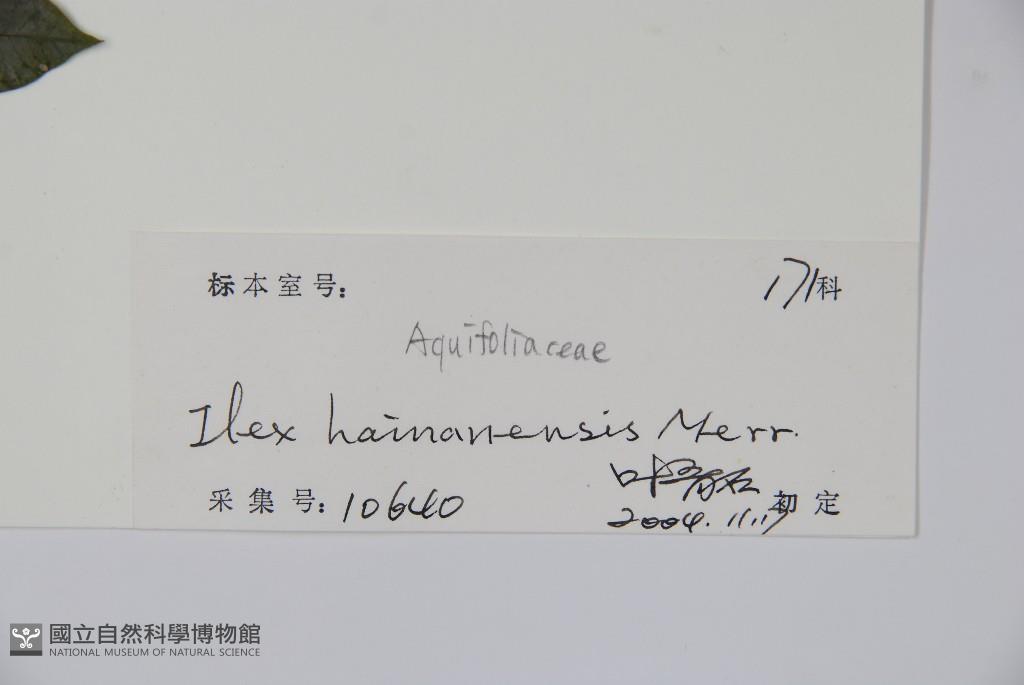 标本室号: 171科
Aquifoliaceae
Ilex hainanensis Merr.
叶育石
采集号: 10640 初定
2004.11.17
國立自然科學博物館
NATIONAL MUSEUM OF NATURAL SCIENCE